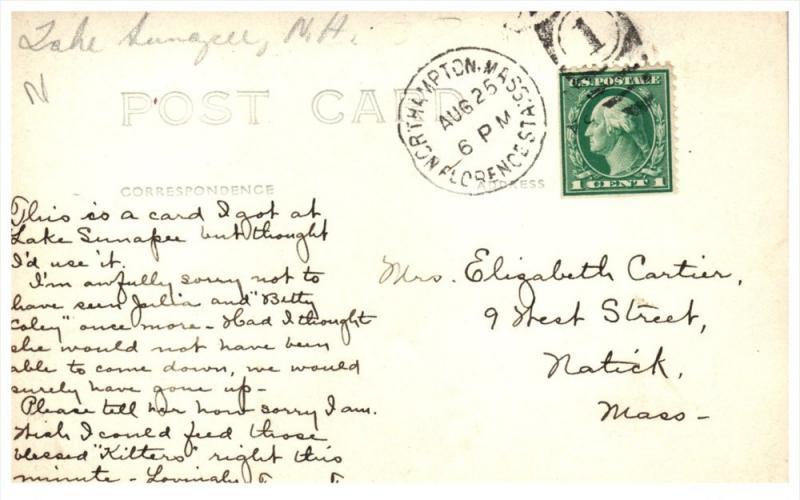 Lake Sunapee, N.H.
N
POST CARD
NORTHAMPTON, MASS.
AUG 25
6 PM
FLORENCE STA.
1
U.S. POSTAGE
1 CENT 1
CORRESPONDENCE
ADDRESS
This is a card I got at
Lake Sunapee but thought
I'd use it.
I'm awfully sorry not to
have seen Julia and "Betty
Coley" once more - Had I thought
she would not have been
able to come down, we would
surely have gone up -
Please tell her how sorry I am.
Wish I could feed those
blessed "Kitters" right this
minute - Lovingly
Mrs. Elizabeth Cartier,
9 West Street,
Natick,
Mass -